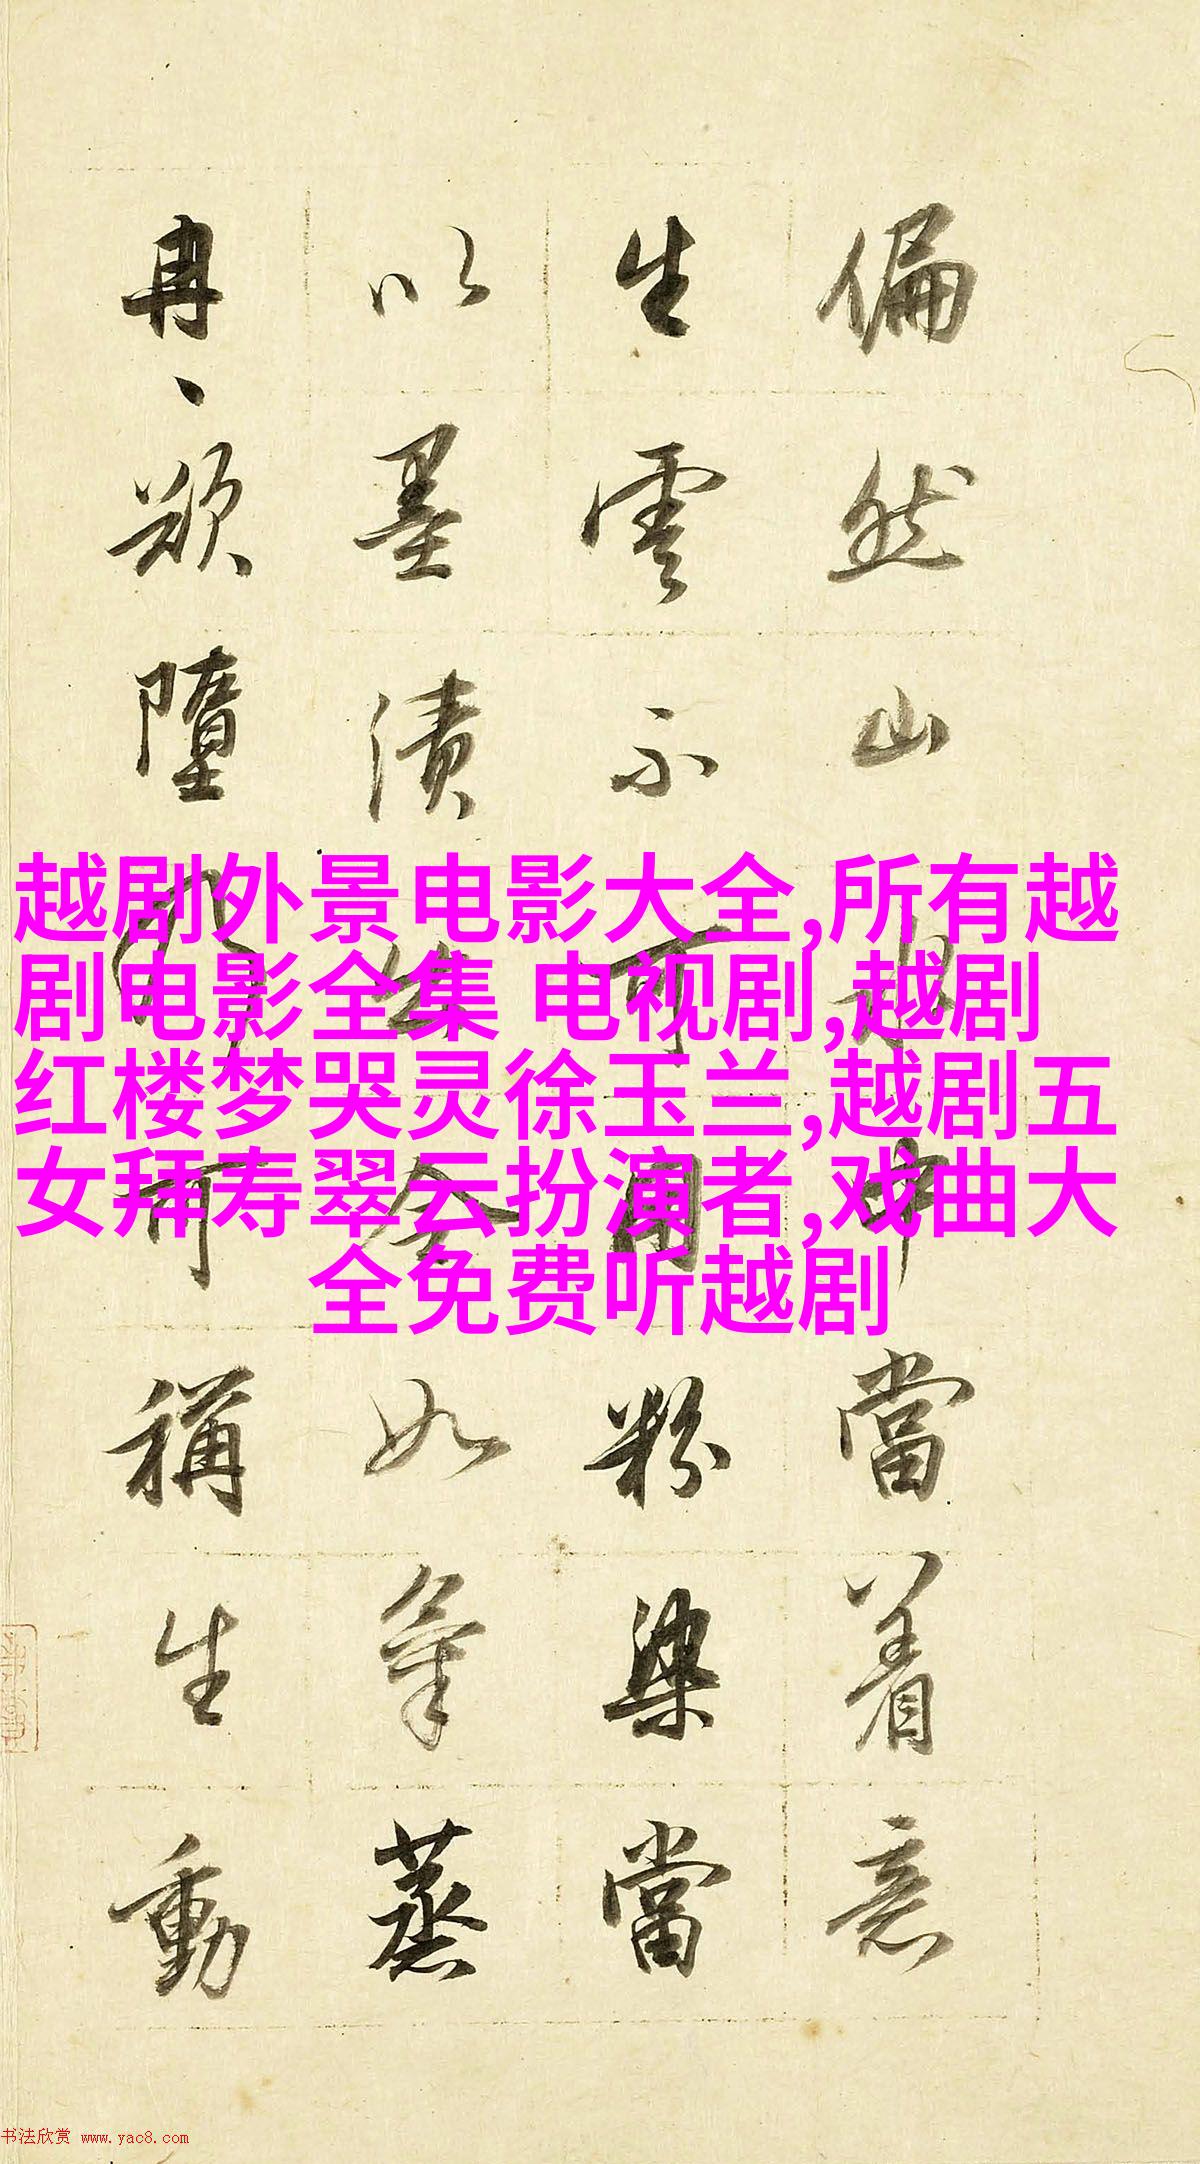 偏然山水中當着意
生雲不可用粉染當
以墨漬出令如氣蒸
冉、欲墮乃可稱生動
越剧外景电影大全,所有越
剧电影全集 电视剧,越剧
红楼梦哭灵徐玉兰,越剧五
女拜寿翠云扮演者,戏曲大
全免费听越剧
书法欣赏 www.yac8.com